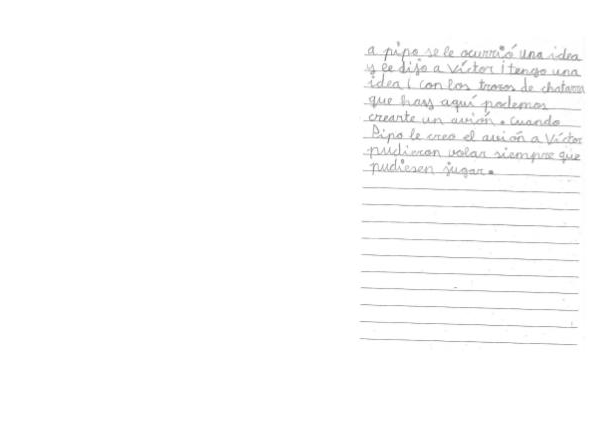 a pipo se le ocurrió una idea
y le dijo a Víctor ¡tengo una
idea! con los trosos de chatarra
que hay aquí podemos
crearte un avión. Cuando
Pipo le creo el avión a Víctor
pudieron volar siempre que
pudiesen jugar.